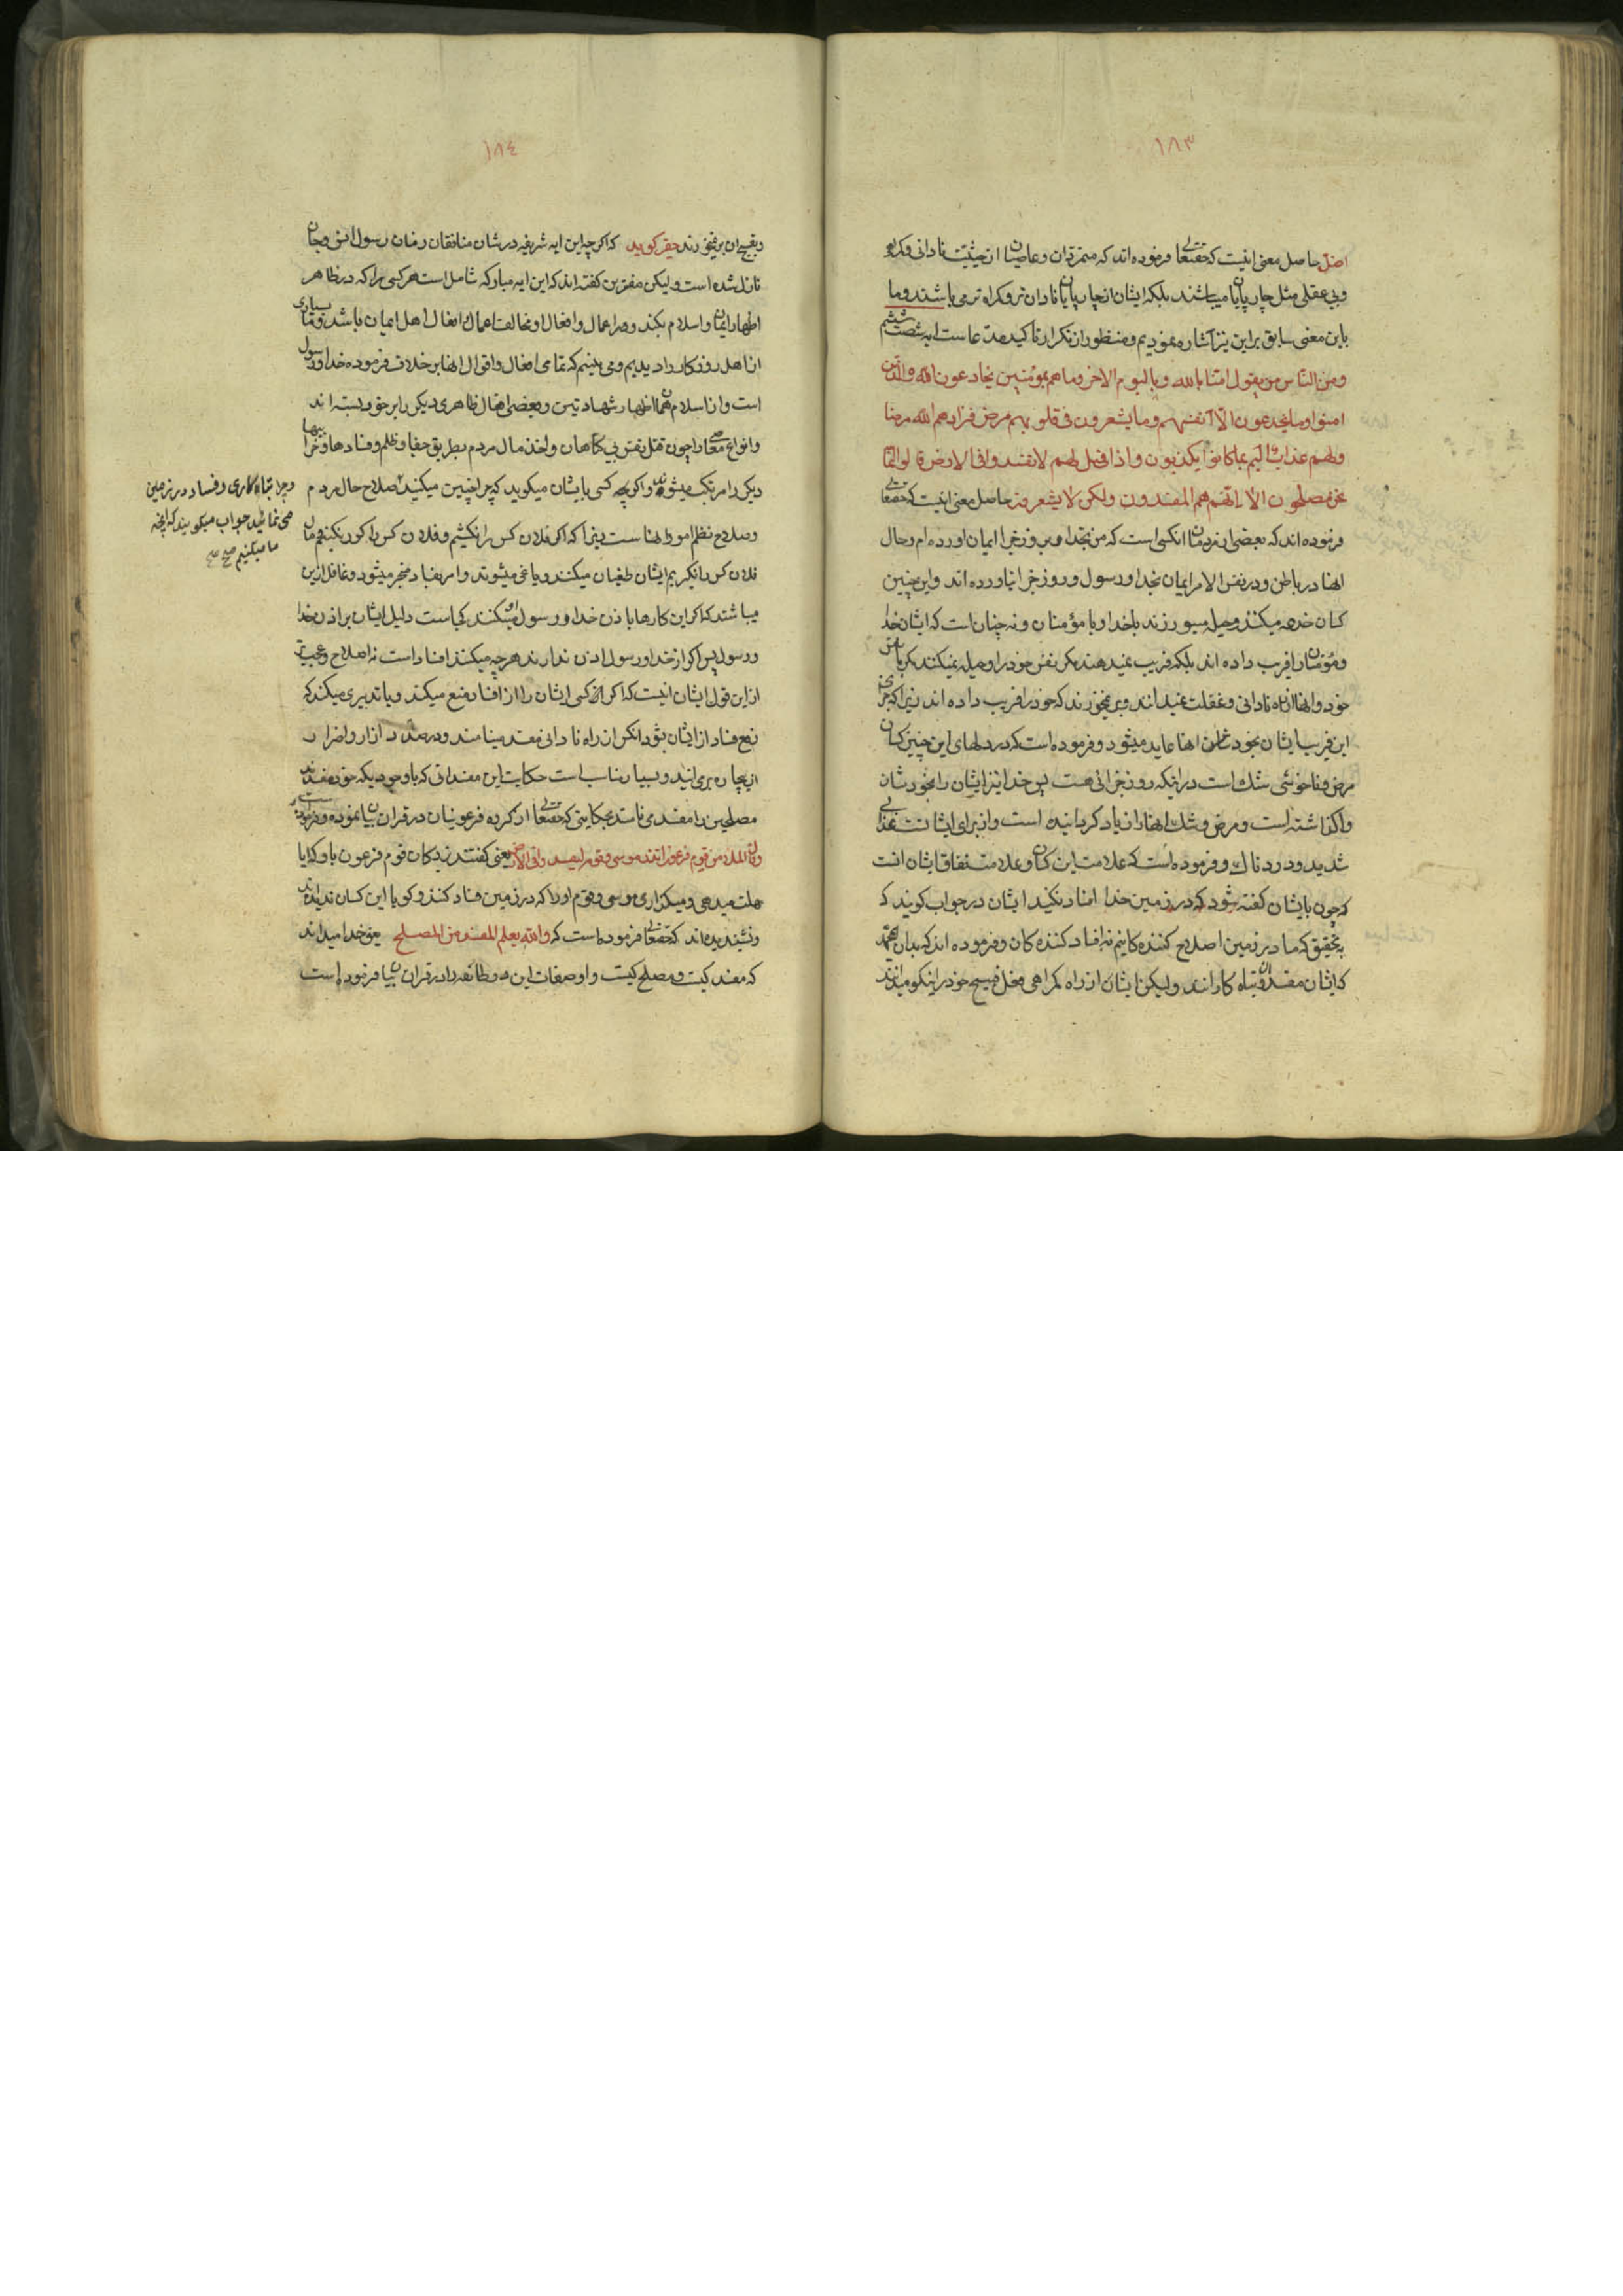 ١٨٣
اضل حاصل معنی اینست که حقتعالی فرموده اند که متمردان و عاصیان از حیثیت نادانی و کمراهی
و بی عقلی مثل چارپایان میباشند بلکه ایشان از چارپایان نادان تر و کمراه تر می باشند و ما
باین معنی سابق براین نیز اشاره نمودیم و منظور از تکرار تاکید مدعاست آیه شصت ششم
ومن الناس من یقول امنا بالله و بالیوم الاخر وما هم بمؤمنین یخادعون الله والذین
امنوا وما یخدعون الا انفسهم وما یشعرون فی قلوبهم مرض فزادهم الله مرضا
ولهم عذاب الیم بما کانوا یکذبون واذا قیل لهم لا تفسدوا فی الارض قالوا انما
نحن مصلحون الا انهم هم المفسدون ولکن لا یشعرون حاصل معنی اینست که حقتعالی
فرموده اند که بعضی از مردمان انکسی است که من بخدا و بروز جزا ایمان اورده ام و حال
انها در باطن و در نفس الامر ایمان بخدا و رسول و روز جزا نیاورده اند و این چنین
کسان خدعه میکنند و حیله میورزند با خدا و با مؤمنان و نه چنان است که ایشان خدا
و مؤمنان را فریب داده اند بلکه فریب نمیدهند مکر نفس خود را و حیله نمیکنند مکر با نفس
خود و انها از راه نادانی و غفلت نمیدانند و بر نمیخورند که خود را فریب داده اند زیرا که جزای
این فریب ایشان بخود انها عاید میشود و فرموده است که در دلهای این چنین کسان
مرض و ناخوشی شك است در اینکه روز جزائی هست پس خدا نیز ایشان را بخودشان
واکذاشته است و مرض و شك انها را زیاد کردانیده است و از برای ایشانست عذابی
شدید و دردناك و فرموده است که علامت این کسان و علامت نفاق ایشان انست
که چون بایشان کفته شود که در زمین خدا افساد نکنید ایشان در جواب کویند که
بتحقیق که ما در زمین اصلاح کننده کانیم نه افساد کننده کان و فرموده اند که بدان ای محمد
که ایشان مفسدان و تباه کارانند ولیکن ایشان از راه کمراهی فعل قبیح خود را نیکو میدانند
١٨٤
و بقبیح ان بر نمیخورند حقیر کوید که اکر چه این ایه شریفه در شان منافقان زمان رسول انس و جان
نازل شده است ولیکن مفسرین کفته اند که این ایه مبارکه شامل است هر کسی را که در ظاهر
اظهار ایمان و اسلام بکند و در اعمال و افعال او مخالفت اعمال و افعال اهل ایمان باشد و ما بسیاری
از اهل روزکار را دیدیم و می بینیم که تمامی افعال و اقوال انها بر خلاف فرموده خدا و رسول
است و از اسلام همان اظهار شهادتین و بعضی افعال ظاهری دیکر را بر خود بسته اند
و انواع معاصی را چون قتل نفس بی کناهان و اخذ مال مردم بطریق جفا و ظلم و فسادها و خرابیها
دیکر را مرتکب میشوند و اکر چه کسی بایشان میکوید که چرا چنین میکنید اصلاح حال مردم
و صلاح نظام امور انها است زیرا که اکر فلان کس را نکشیم و فلان کس را کور نکنیم و مال
فلان کس را نکیریم ایشان طغیان میکنند و یاغی میشوند و امر بفساد منجر میشود و غافل ازین
میباشند که اکر این کارها باذن خدا و رسول او میکنند کجاست دلیل ایشان بر اذن خدا
و رسول پس اکر از خدا و رسول اذن ندارند هر چه میکنند افساد است نه اصلاح و عجیب تر
از این قول ایشان انیست که اکر کسی ایشان را از افساد منع میکند و یا تدبیری میکند که
رفع فساد از ایشان بشود انکس از راه نادانی مفسد مینامند و در صدد ازار و اضرار
ان بیچاره بر می ایند و بسیار مناسب است حکایت این مفسدانی که با وجودیکه خود مفسدند
مصلحین را مفسد می نامند بحکایتی که حقتعالی از کروه فرعونیان در قران بیان نموده و فرموده است
وقال الملاء من قوم فرعون اتذر موسی وقومه لیفسدوا فی الارض یعنی کفتند بزرکان قوم فرعون باو که ایا
مهلت میدهی و میکذاری موسی و قوم او را که در زمین فساد کنند و کویا این کسان ندیده اند
و نشنیده اند که حقتعالی فرموده است که والله یعلم المفسد من المصلح یعنی خدا میداند
که مفسد کیست و مصلح کیست و اوصاف این دو طائفه را در قران بیان فرموده است
و چرا تباه کاری و فساد در زمین
می نمائید جواب میکویند که انچه
ما میکنیم صح